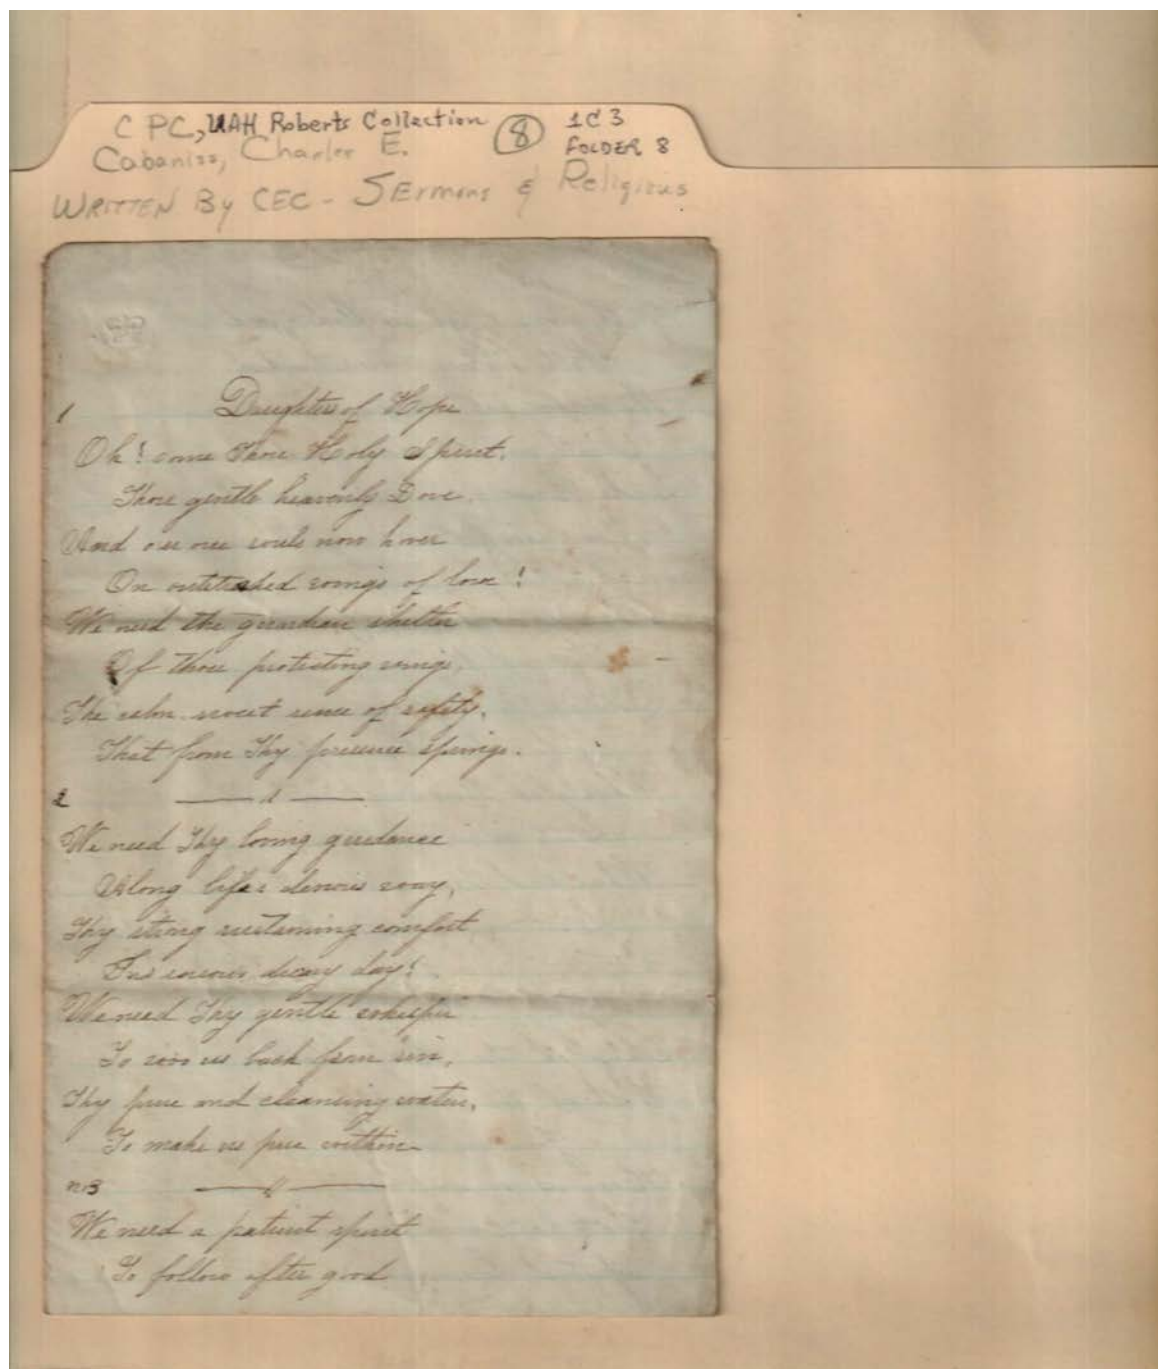 C PC, UAH Roberts Collection (8) 1C3
Cabaniss, Charles E. FOLDER 8
WRITTEN By CEC - SErmons & Religious
1 Daughters of Hope
Oh! come Thou Holy Spirit.
Thou gentle heavenly Dove.
And our souls now hover
On outstreched wings of love!
We need the guardian shelter
Of those protecting wings,
The calm sweet sense of safety,
That from Thy presence springs.
2
We need Thy loving guidance
Along life's devious way,
Thy strong sustaining comfort
dreary day!
We need Thy gentle whisper
To woo us back from sin,
Thy pure and cleansing waters,
To make us pure within
no3
We need a patient spirit
To follow after good